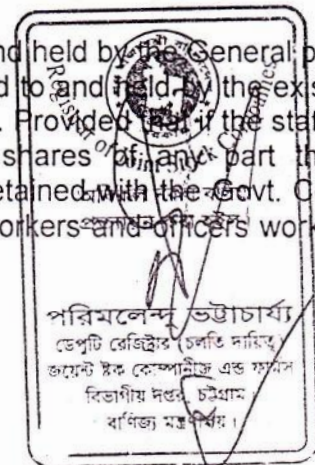 nd held by the General p
d to and held by the exis
. Provided that if the stat
shares of any part th
etained with the Govt. C
orkers and officers work
Registrar of Joint Stock Companies
পরিমলেন্দু ভট্টাচার্য্য
ডেপুটি রেজিষ্ট্রার (চলতি দায়িত্ব)
জয়েন্ট ষ্টক কোম্পানীজ এন্ড ফার্মস
বিভাগীয় দপ্তর, চট্টগ্রাম।
বাণিজ্য মন্ত্রণালয়।